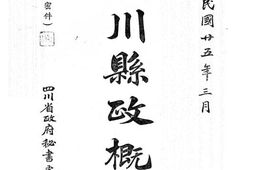 民國廿五年三月
川縣政概
四川省政府秘書
密件）